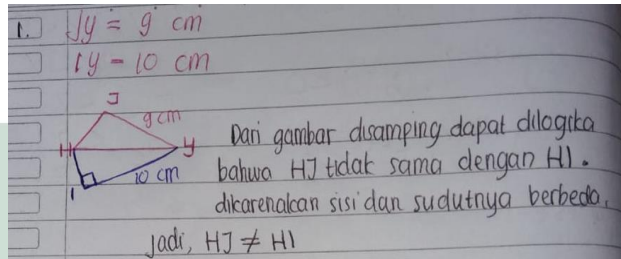 1. Jy = 9 cm
1y = 10 cm
J
9 cm
H
y
10 cm
1
Dari gambar disamping dapat dilogika
bahwa HJ tidak sama dengan HI.
dikarenakan sisi dan sudutnya berbeda.
Jadi, HJ ≠ HI